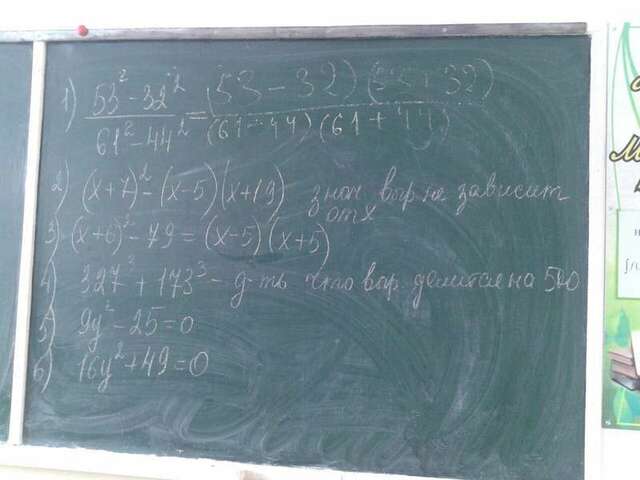 1) (53² - 32²)/(61² - 44²) = (53 - 32)(53 + 32)/(61 - 44)(61 + 44)
2) (x+7)² - (x-5)(x+19) знач выр. не зависит
от x
3) (x+6)² - 79 = (x-5)(x+5)
4) 327³ + 173³ - д-ть что выр. делится на 500
5) 9y² - 25 = 0
6) 16y² + 49 = 0